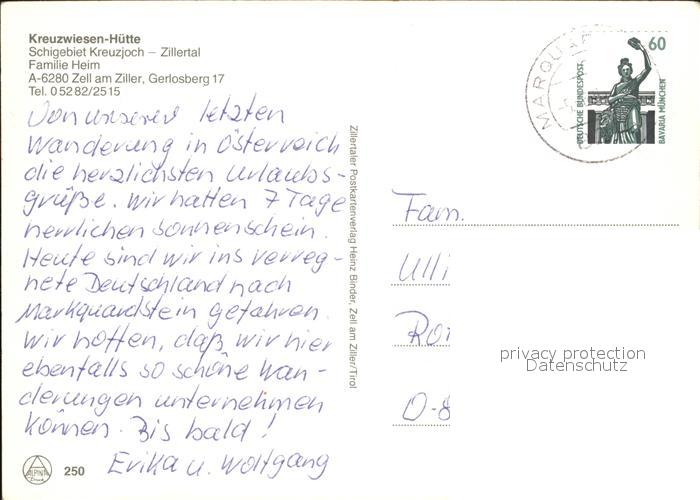 Kreuzwiesen-Hütte
Schigebiet Kreuzjoch – Zillertal
Familie Heim
A-6280 Zell am Ziller, Gerlosberg 17
Tel. 0 52 82/25 15
Von unserer letzten
Wanderung in Österreich
die herzlichsten Urlaubs-
grüße. Wir hatten 7 Tage
herrlichen Sonnenschein.
Heute sind wir ins verreg-
nete Deutschland nach
Markquardstein gefahren.
Wir hoffen, daß wir hier
ebenfalls so schöne Wan-
derungen unternehmen
können. Bis bald!
Erika u. Wolfgang
ALPINA
250
Zillertaler Postkartenverlag Heinz Binder, Zell am Ziller/Tirol
60
DEUTSCHE BUNDESPOST
BAVARIA MÜNCHEN
Fam.
Ulli
O-8
privacy protection
Datenschutz